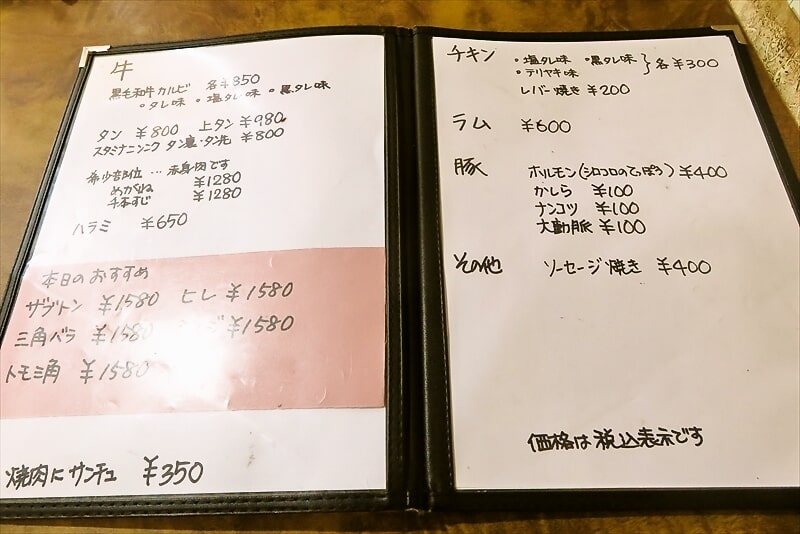 牛
黒毛和牛カルビ 各¥850
・タレ味 ・塩タレ味 ・黒タレ味
タン ¥800 上タン ¥980
スタミナニンニク タン裏・タン先 ¥800
希少部位 … 赤身肉です
めがね ¥1280
千本すじ ¥1280
ハラミ ¥650
本日のおすすめ
ザブトン ¥1580 ヒレ ¥1580
三角バラ ¥1580 ¥1580
トモ三角 ¥1580
焼肉にサンチュ ¥350
チキン ・塩タレ味 ・黒タレ味 } 各¥300
・テリヤキ味
レバー焼き ¥200
ラム ¥600
豚 ホルモン(シロコロのてっぽう) ¥400
かしら ¥100
ナンコツ ¥100
大動脈 ¥100
その他 ソーセージ焼き ¥400
価格は税込表示です